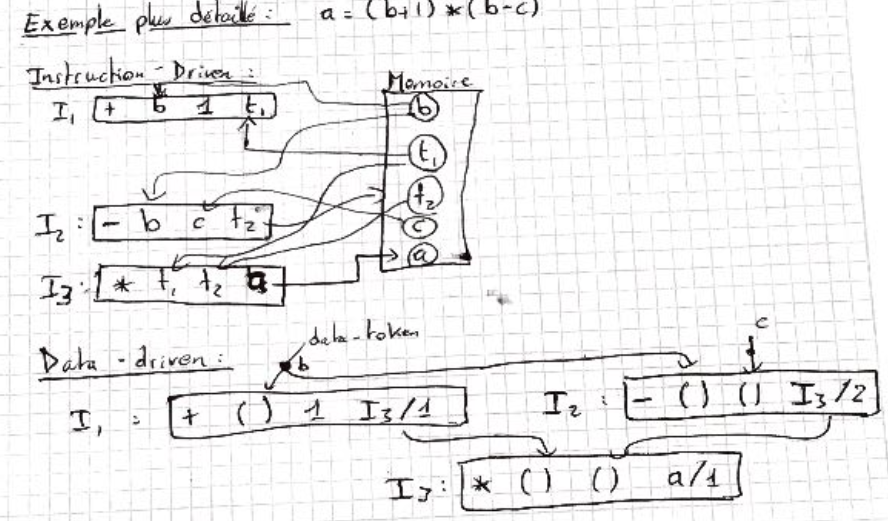 Exemple plus détaillé : a = (b+1) * (b-c)
Instruction-Driven :
Mémoire
I1 + b 1 t1
b
t1
t2
I2 : - b c t2
c
a
I3 : * t1 t2 a
data-token
c
Data-driven :
b
I1 : + ( ) 1 I3/1
I2 : - ( ) ( ) I3/2
I3 : * ( ) ( ) a/1